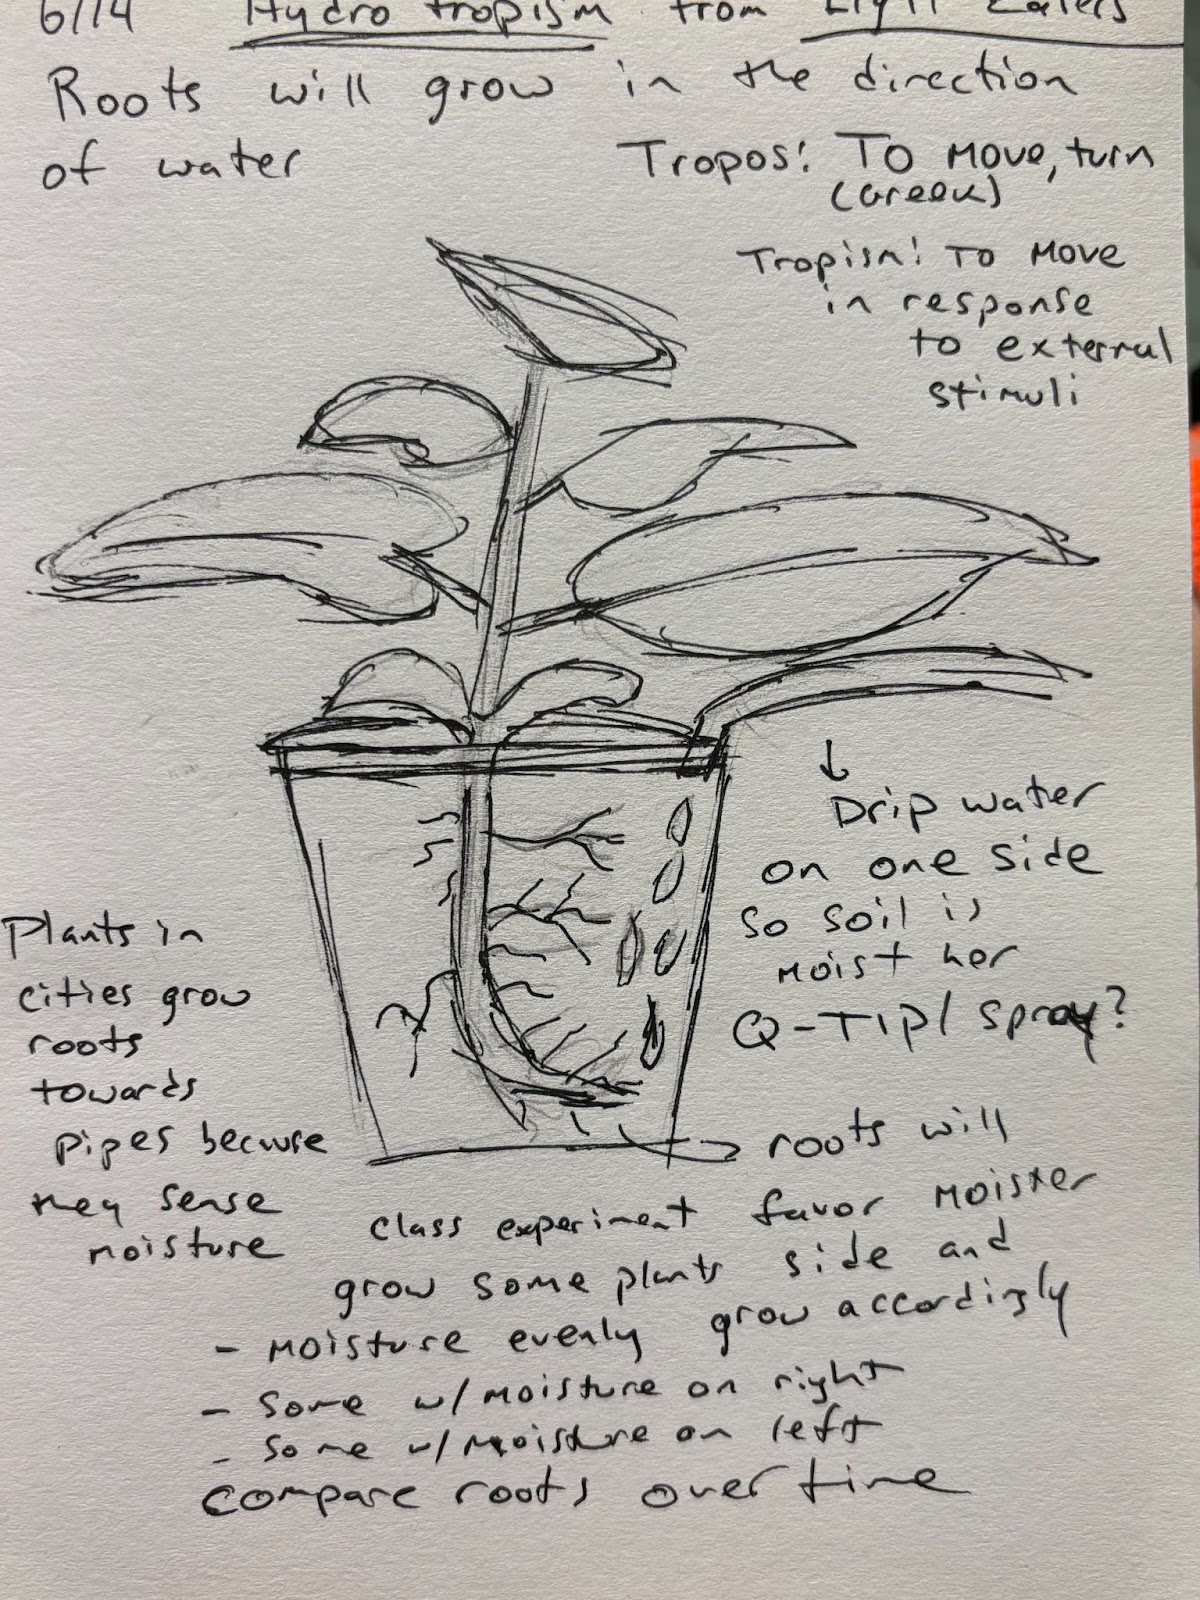 6/14 Hydrotropism from Light Eaters
Roots will grow in the direction
of water
Tropos: To move, turn
(Greek)
Tropism: To move
in response
to external
stimuli
↓
Drip water
on one side
so soil is
moist her
Q-Tip/ spray?
Plants in
cities grow
roots
towards
pipes because
they sense
moisture
roots will
favor moister
side and
grow accordingly
class experiment
grow some plants
- moisture evenly
- some w/moisture on right
- some w/moisture on left
compare roots over time